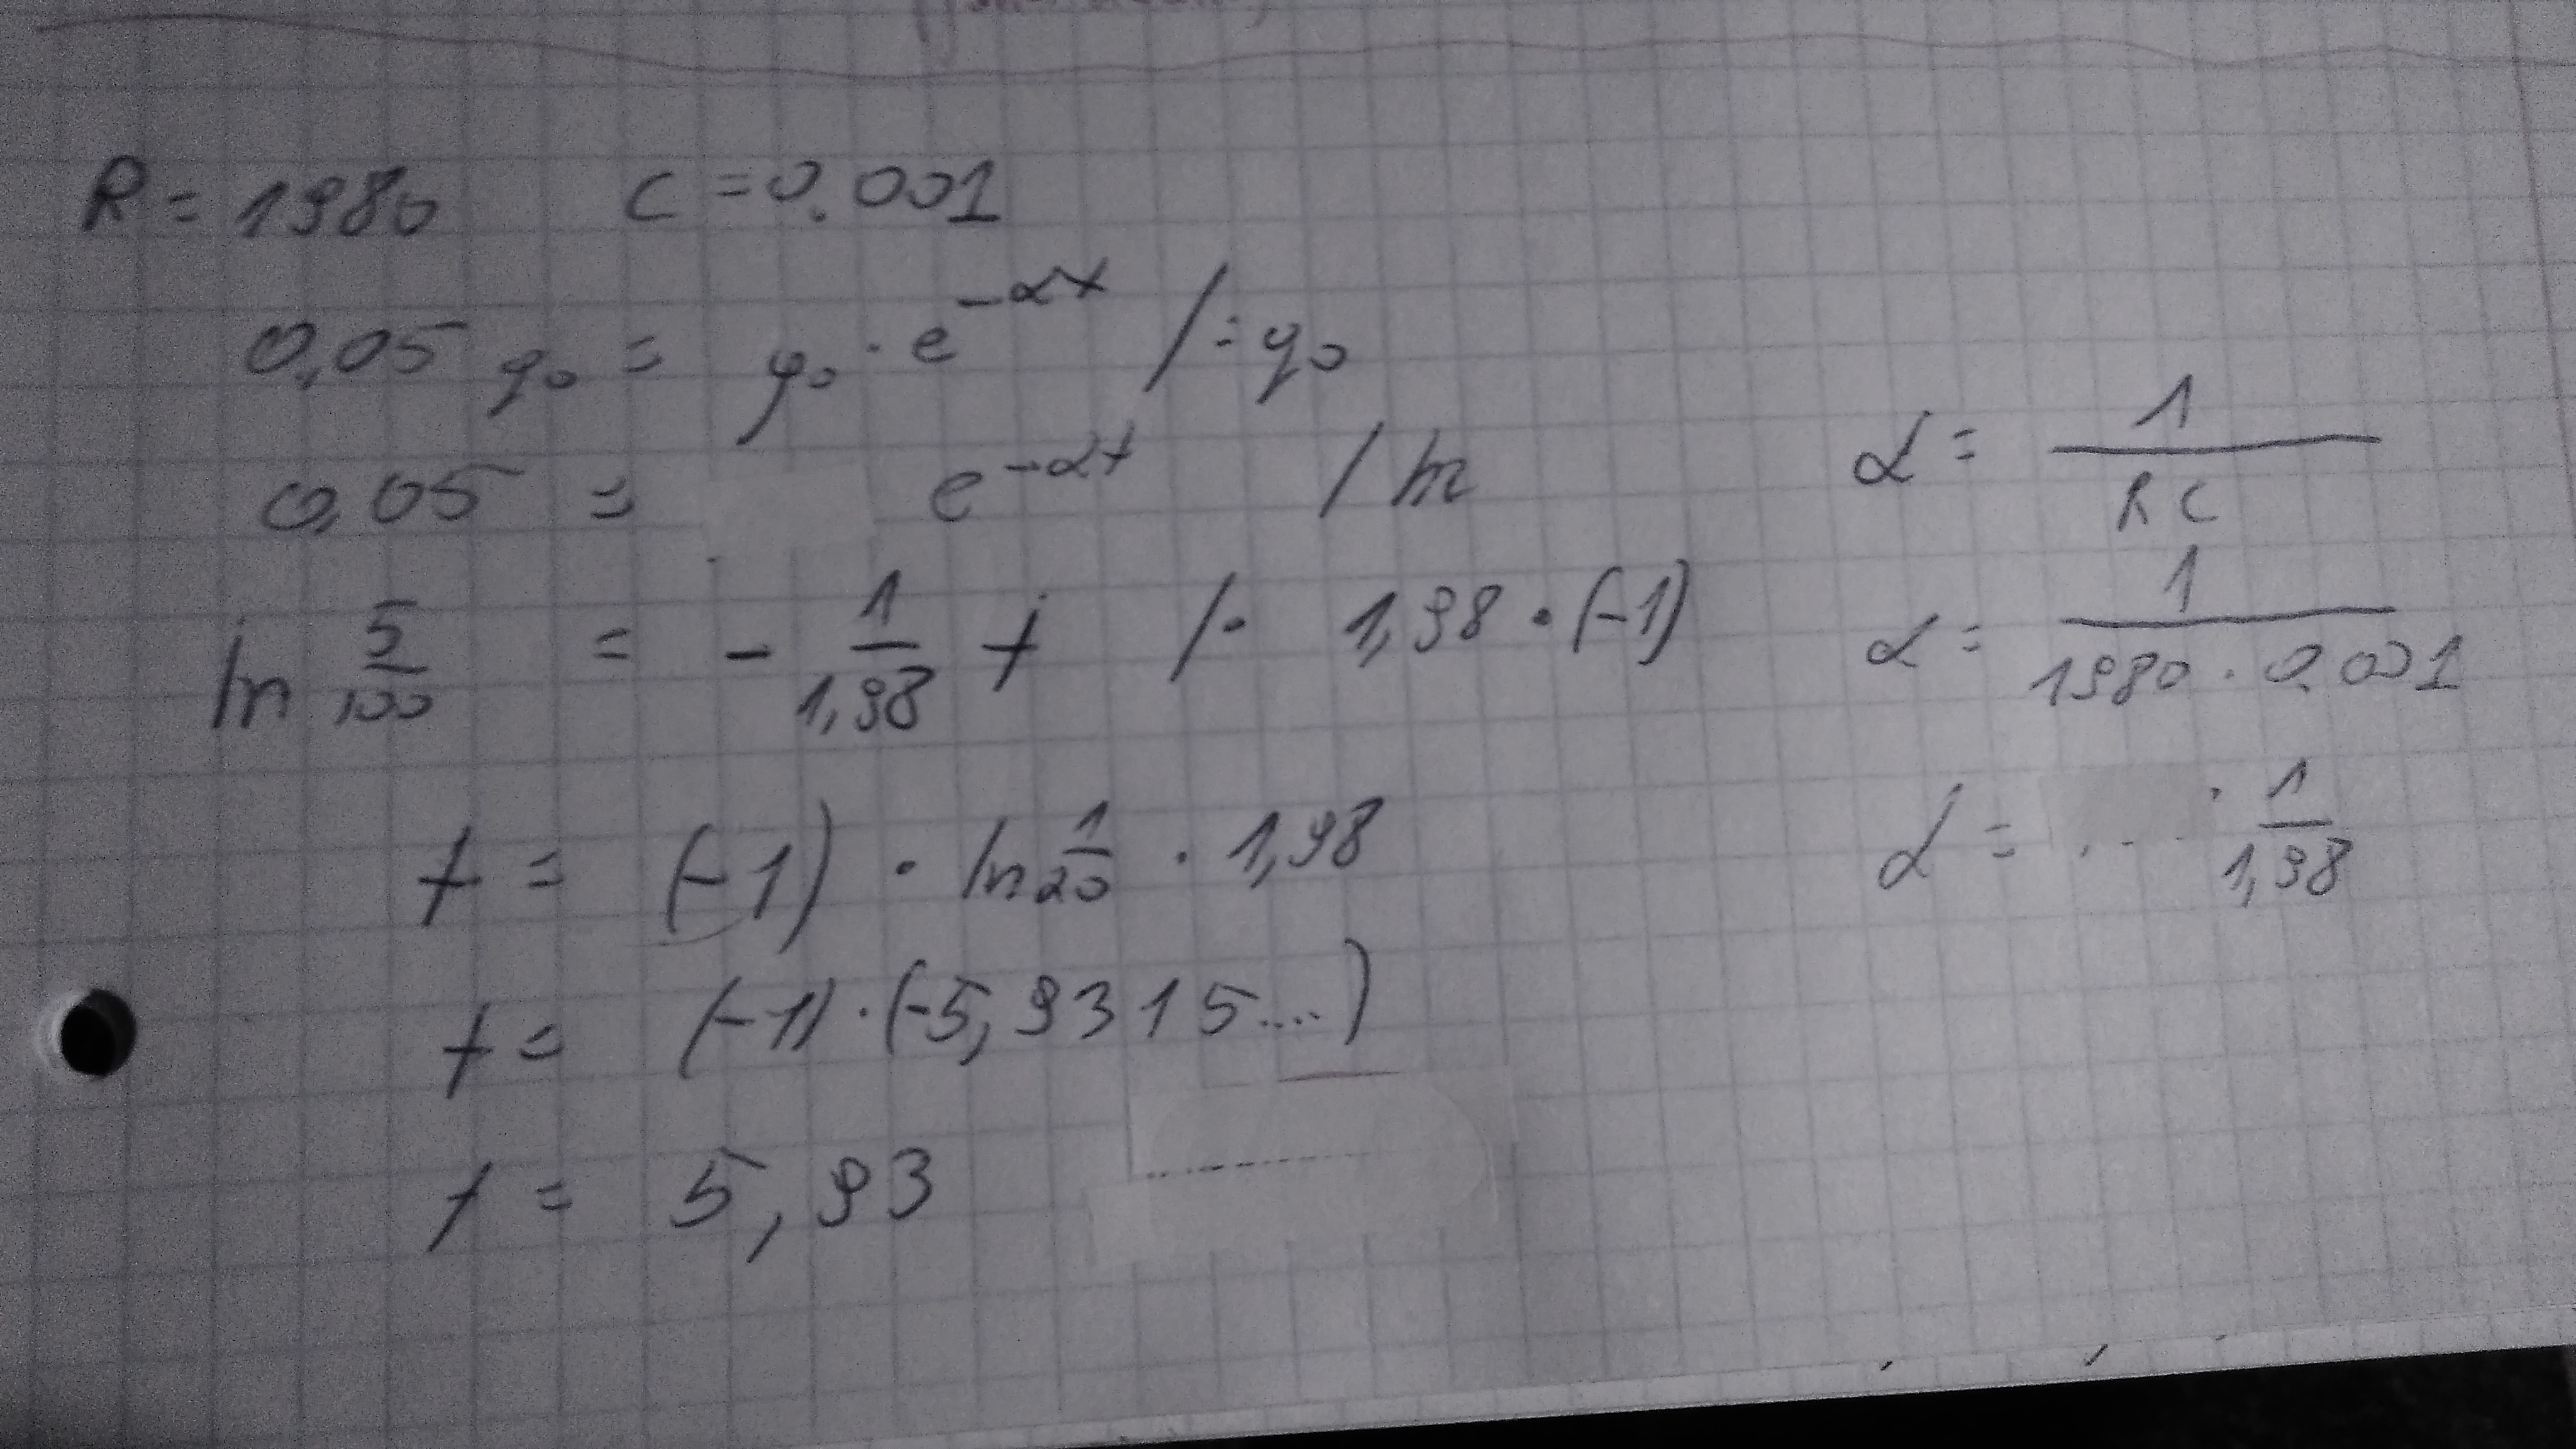 R = 1980 C = 0.001
0,05 q₀ = q₀ · e^(-αt) / : q₀
0,05 = e^(-αt) / ln
ln 5/100 = - 1/1,98 t / · 1,98 · (-1)
t = (-1) · ln 1/20 · 1,98
t = (-1) · (-5,9315....)
t = 5,93
α = 1/RC
α = 1/1980 · 0.001
α = 1/1,98